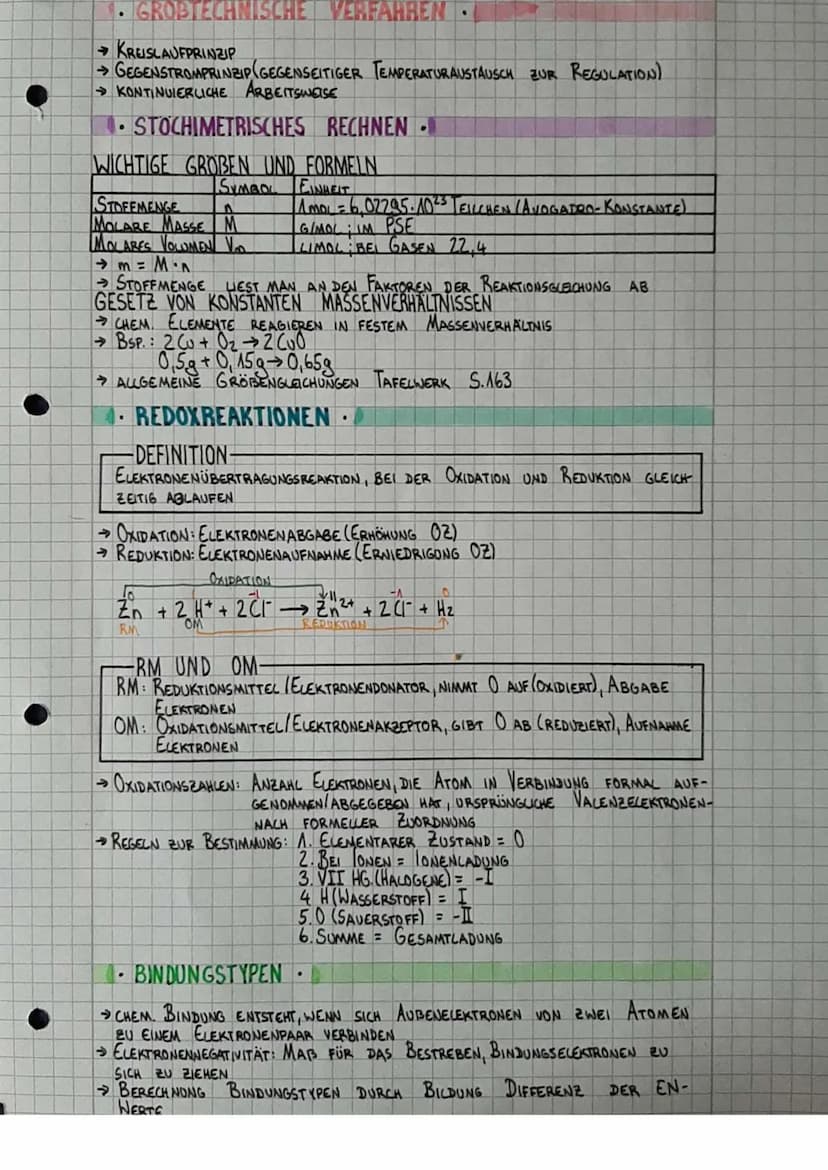 · GROẞTECHNISCHE VERFAHREN ·
→ KREISLAUFPRINZIP
→ GEGENSTROMPRINZIP (GEGENSEITIGER TEMPERATURAUSTAUSCH ZUR REGULATION)
→ KONTINUIERLICHE ARBEITSWEISE
· STÖCHIMETRISCHES RECHNEN ·
WICHTIGE GRÖẞEN UND FORMELN
SYMBOL EINHEIT
STOFFMENGE n 1MOL = 6,02295·10²³ TEILCHEN (AVOGADRO-KONSTANTE)
MOLARE MASSE M G/MOL ; IM PSE
MOLARES VOLUMEN Vm L/MOL ; BEI GASEN 22,4
→ m = M·n
→ STOFFMENGE LIEST MAN AN DEN FAKTOREN DER REAKTIONSGLEICHUNG AB
GESETZ VON KONSTANTEN MASSENVERHÄLTNISSEN
→ CHEM. ELEMENTE REAGIEREN IN FESTEM MASSENVERHÄLTNIS
→ BSP.: 2Cu + O₂ → 2CuO
0,5g + 0,15g → 0,65g
→ ALLGEMEINE GRÖẞENGLEICHUNGEN TAFELWERK S.163
· REDOXREAKTIONEN ·
DEFINITION
ELEKTRONENÜBERTRAGUNGSREAKTION, BEI DER OXIDATION UND REDUKTION GLEICH-
ZEITIG ABLAUFEN
→ OXIDATION: ELEKTRONENABGABE (ERHÖHUNG OZ)
→ REDUKTION: ELEKTRONENAUFNAHME (ERNIEDRIGUNG OZ)
OXIDATION
0 I -I II -I 0
Zn + 2H⁺ + 2Cl⁻ → Zn²⁺ + 2Cl⁻ + H₂
RM OM REDUKTION
RM UND OM
RM: REDUKTIONSMITTEL/ELEKTRONENDONATOR, NIMMT O AUF (OXIDIERT), ABGABE
ELEKTRONEN
OM: OXIDATIONSMITTEL/ELEKTRONENAKZEPTOR, GIBT O AB (REDUZIERT), AUFNAHME
ELEKTRONEN
→ OXIDATIONSZAHLEN: ANZAHL ELEKTRONEN, DIE ATOM IN VERBINDUNG FORMAL AUF-
GENOMMEN/ABGEGEBEN HAT, URSPRÜNGLICHE VALENZELEKTRONEN-
NACH FORMELLER ZUORDNUNG
→ REGELN ZUR BESTIMMUNG: 1. ELEMENTARER ZUSTAND = 0
2. BEI IONEN = IONENLADUNG
3. VII HG. (HALOGENE) = -I
4 H (WASSERSTOFF) = I
5. O (SAUERSTOFF) = -II
6. SUMME = GESAMTLADUNG
· BINDUNGSTYPEN ·
→ CHEM. BINDUNG ENTSTEHT, WENN SICH AUẞENELEKTRONEN VON ZWEI ATOMEN
ZU EINEM ELEKTRONENPAAR VERBINDEN
→ ELEKTRONENNEGATIVITÄT: MAẞ FÜR DAS BESTREBEN, BINDUNGSELEKTRONEN ZU
SICH ZU ZIEHEN
→ BERECHNUNG BINDUNGSTYPEN DURCH BILDUNG DIFFERENZ DER EN-
WERTE